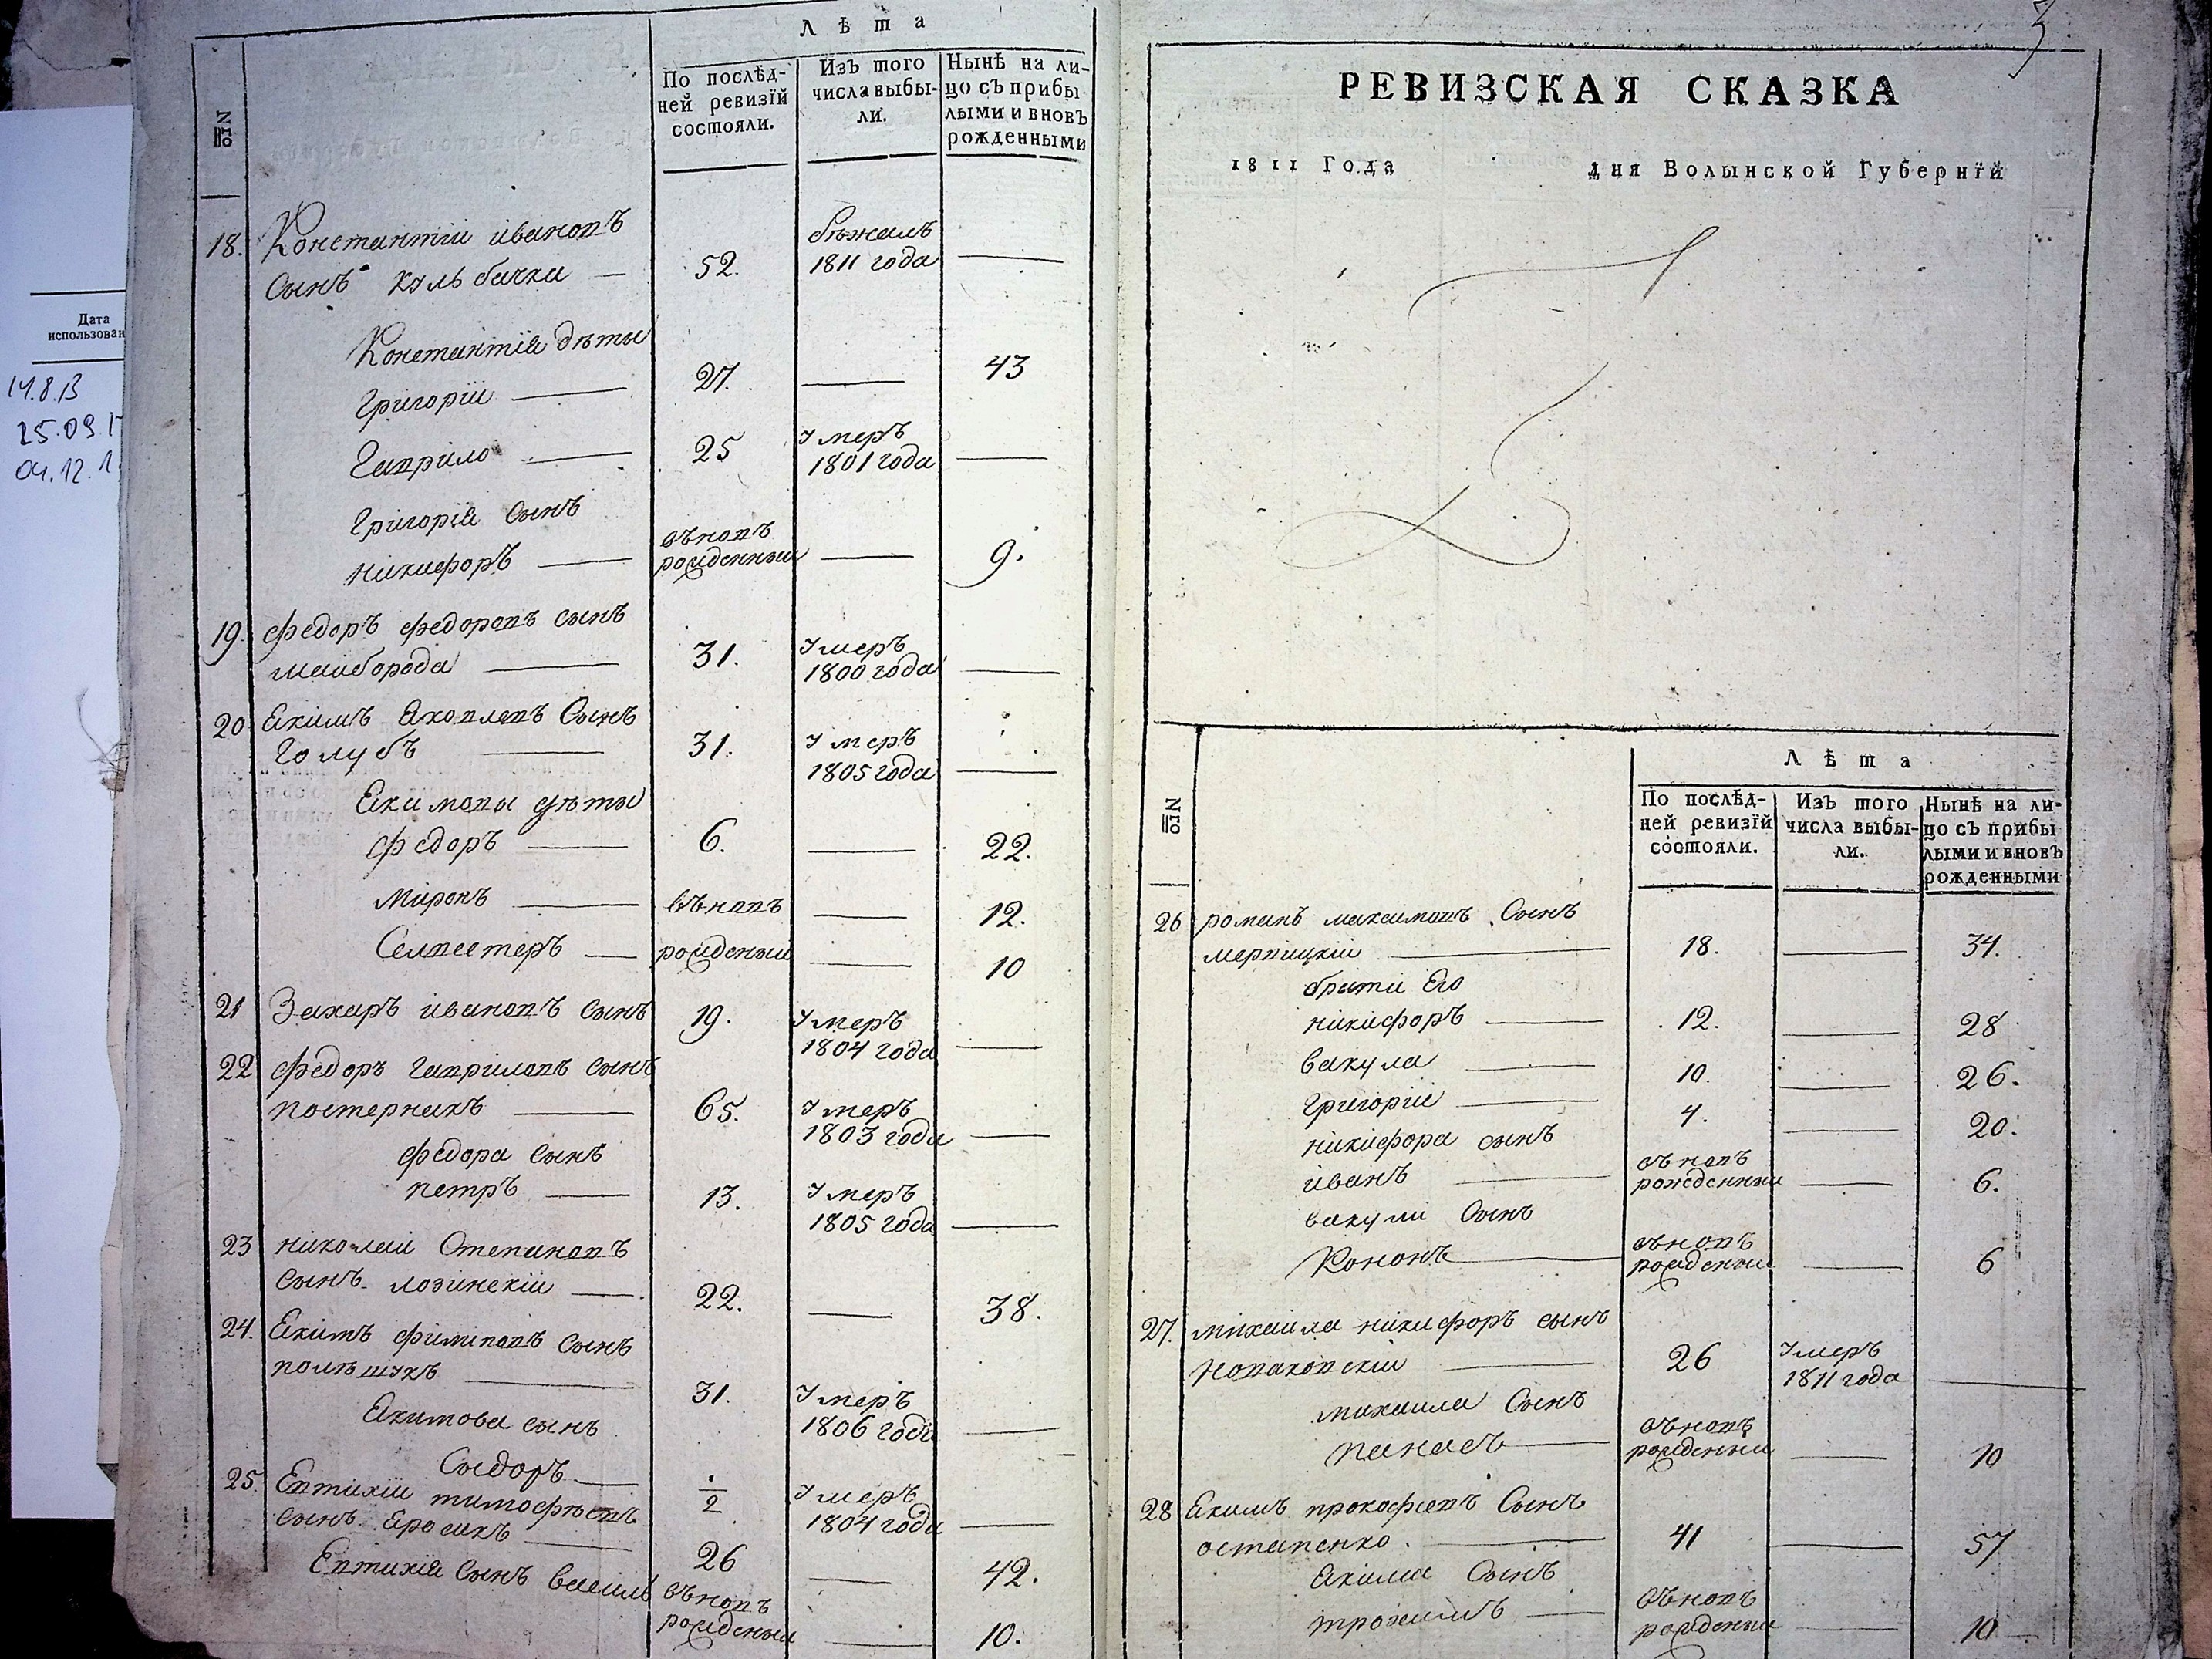 Дата
использован
14.8.13
25.09.1
04.12.1
Лѣта
№
По послѣд-
ней ревизїй
состояли.
Изъ того
числа выбы-
ли.
Нынѣ на ли-
цо съ прибы
лыми и вновъ
рожденными
18. Константіи івановъ бѣжалъ
сынъ кульбачка — 52. 1811 года —
Константія дѣты
Григоріи — 27. — 43
Гаврило — 25 умеръ 1801 года —
Григорія сынъ
никифоръ — въновъ рожденныи — 9.
19. федоръ федоровъ сынъ
маиборода — 31. умеръ 1800 года —
20 Екимъ Яковлевъ Сынъ
Голубъ — 31. умеръ 1805 года —
Екимовы дѣты
федоръ — 6. — 22.
Миронъ — въновъ — 12.
Селвестеръ — рожденыи — 10
21 Захаръ ивановъ сынъ 19. умеръ 1804 года —
22 федоръ гавриловъ сынъ
пастернакъ — 65. умеръ 1803 года —
федора сынъ
петръ — 13. умеръ 1805 года —
23 николаи Степановъ
сынъ лозинскіи — 22. — 38.
24. Екимъ филіповъ сынъ
полѣшукъ — 31. умеръ 1806 года —
Екимова сынъ
Сыдоръ — 1/2 умеръ 1804 года —
25. Евтихіи тимофѣевъ
сынъ — 26 — 42.
Евтихія Сынъ василь въновъ рожденыи — 10.
3
РЕВИЗСКАЯ СКАЗКА
1811 Года дня Волынской Губернїй
Лѣта
№
По послѣд-
ней ревизїй
состояли.
Изъ того
числа выбы-
ли.
Нынѣ на ли-
цо съ прибы
лыми и вновъ
рожденными
26 романъ максимовъ Сынъ
мервицкіи — 18. — 34.
браты Его
никифоръ — 12. — 28
вакула — 10. — 26.
григоріи — 4. — 20.
никифора сынъ
иванъ — въновъ рожденныи — 6.
вакули Сынъ
Кононъ — въновъ рожденыи — 6
27. михаила никифоръ сынъ
новаковскіи — 26 умеръ 1811 года —
михаила Сынъ
панасъ — въновъ рожденыи — 10
28 Екимъ прокофіевъ Сынъ
остапенко — 41 — 57
Екима Сынъ
трохимъ — въновъ рожденыи — 10